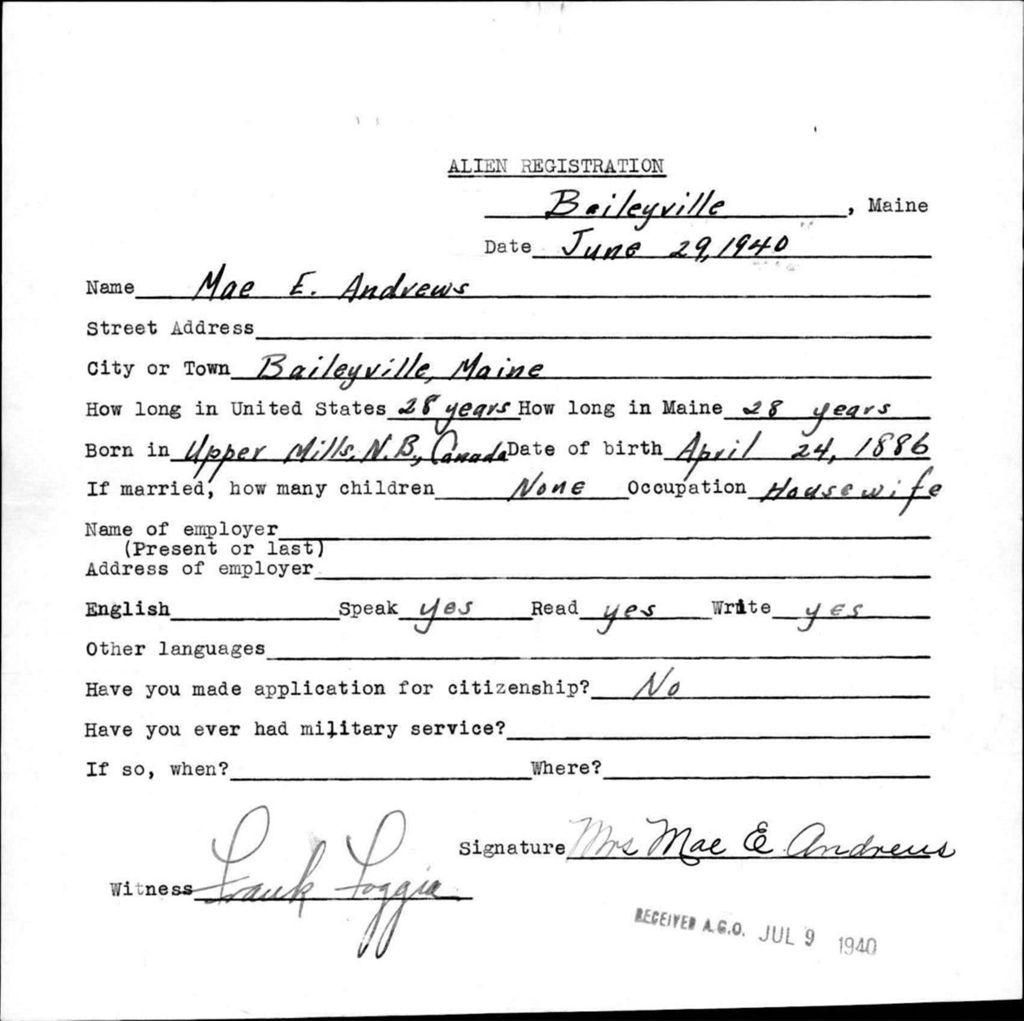 ALIEN REGISTRATION
Baileyville, Maine
Date June 29, 1940
Name Mae E. Andrews
Street Address
City or Town Baileyville, Maine
How long in United States 28 years How long in Maine 28 years
Born in Upper Mills, N.B., Canada Date of birth April 24, 1886
If married, how many children None Occupation Housewife
Name of employer
(Present or last)
Address of employer
English Speak yes Read yes Write yes
Other languages
Have you made application for citizenship? No
Have you ever had military service?
If so, when? Where?
Signature Mrs Mae E. Andrews
Witness Frank Foggia
RECEIVED A.G.O. JUL 9 1940